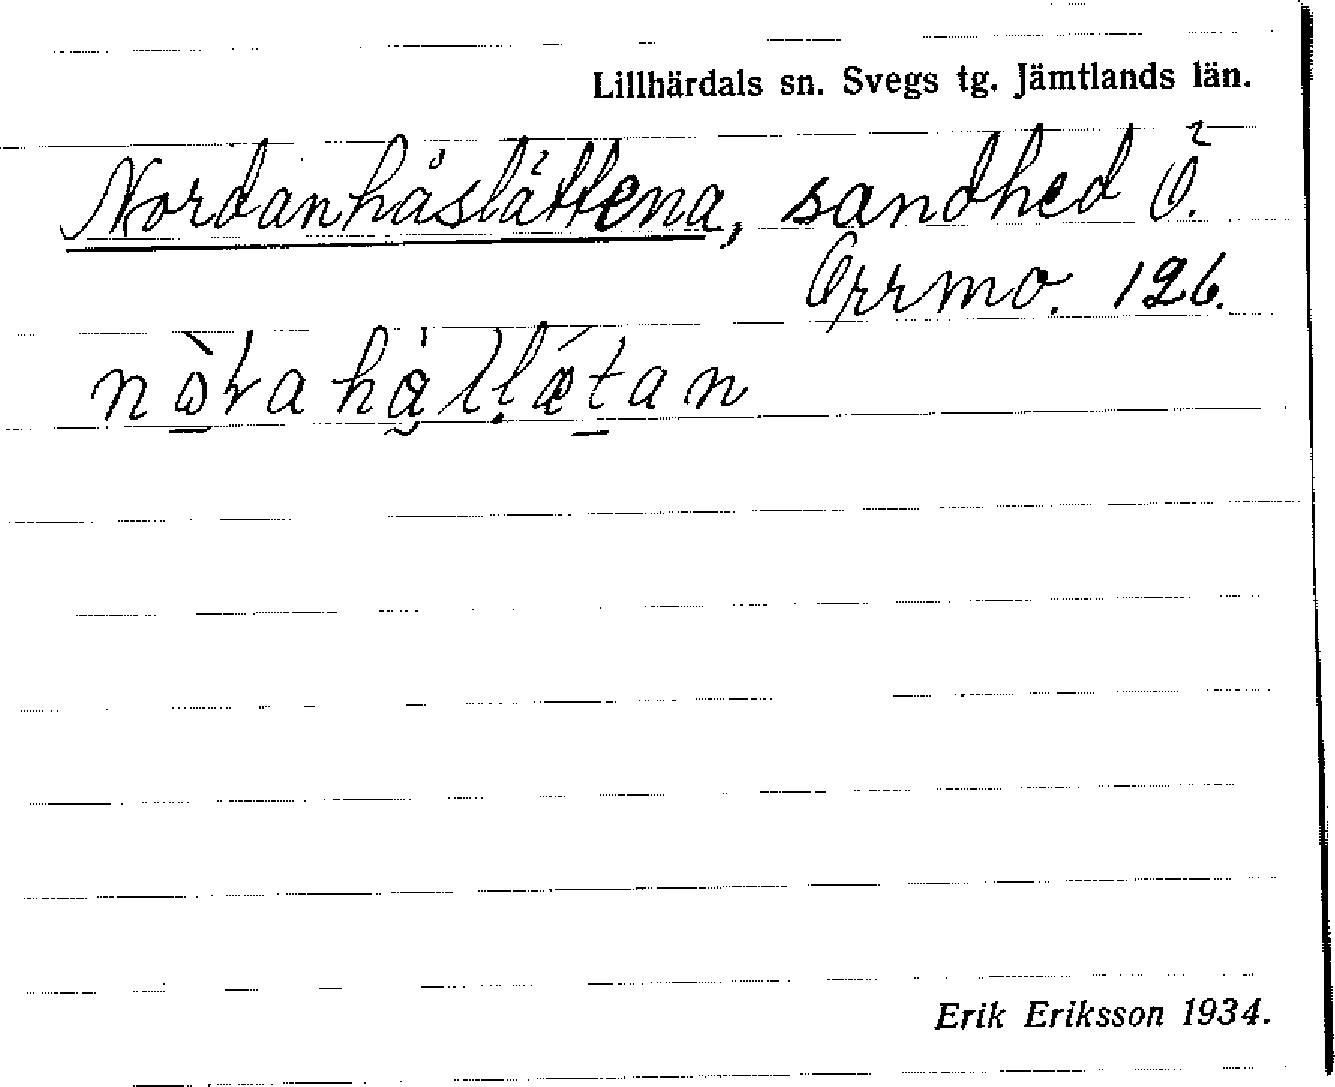 Lillhärdals sn. Svegs tg. Jämtlands län.
Nordanhåslättena, sandhed Ö.
Orrmo. 126.
Erik Eriksson 1934.